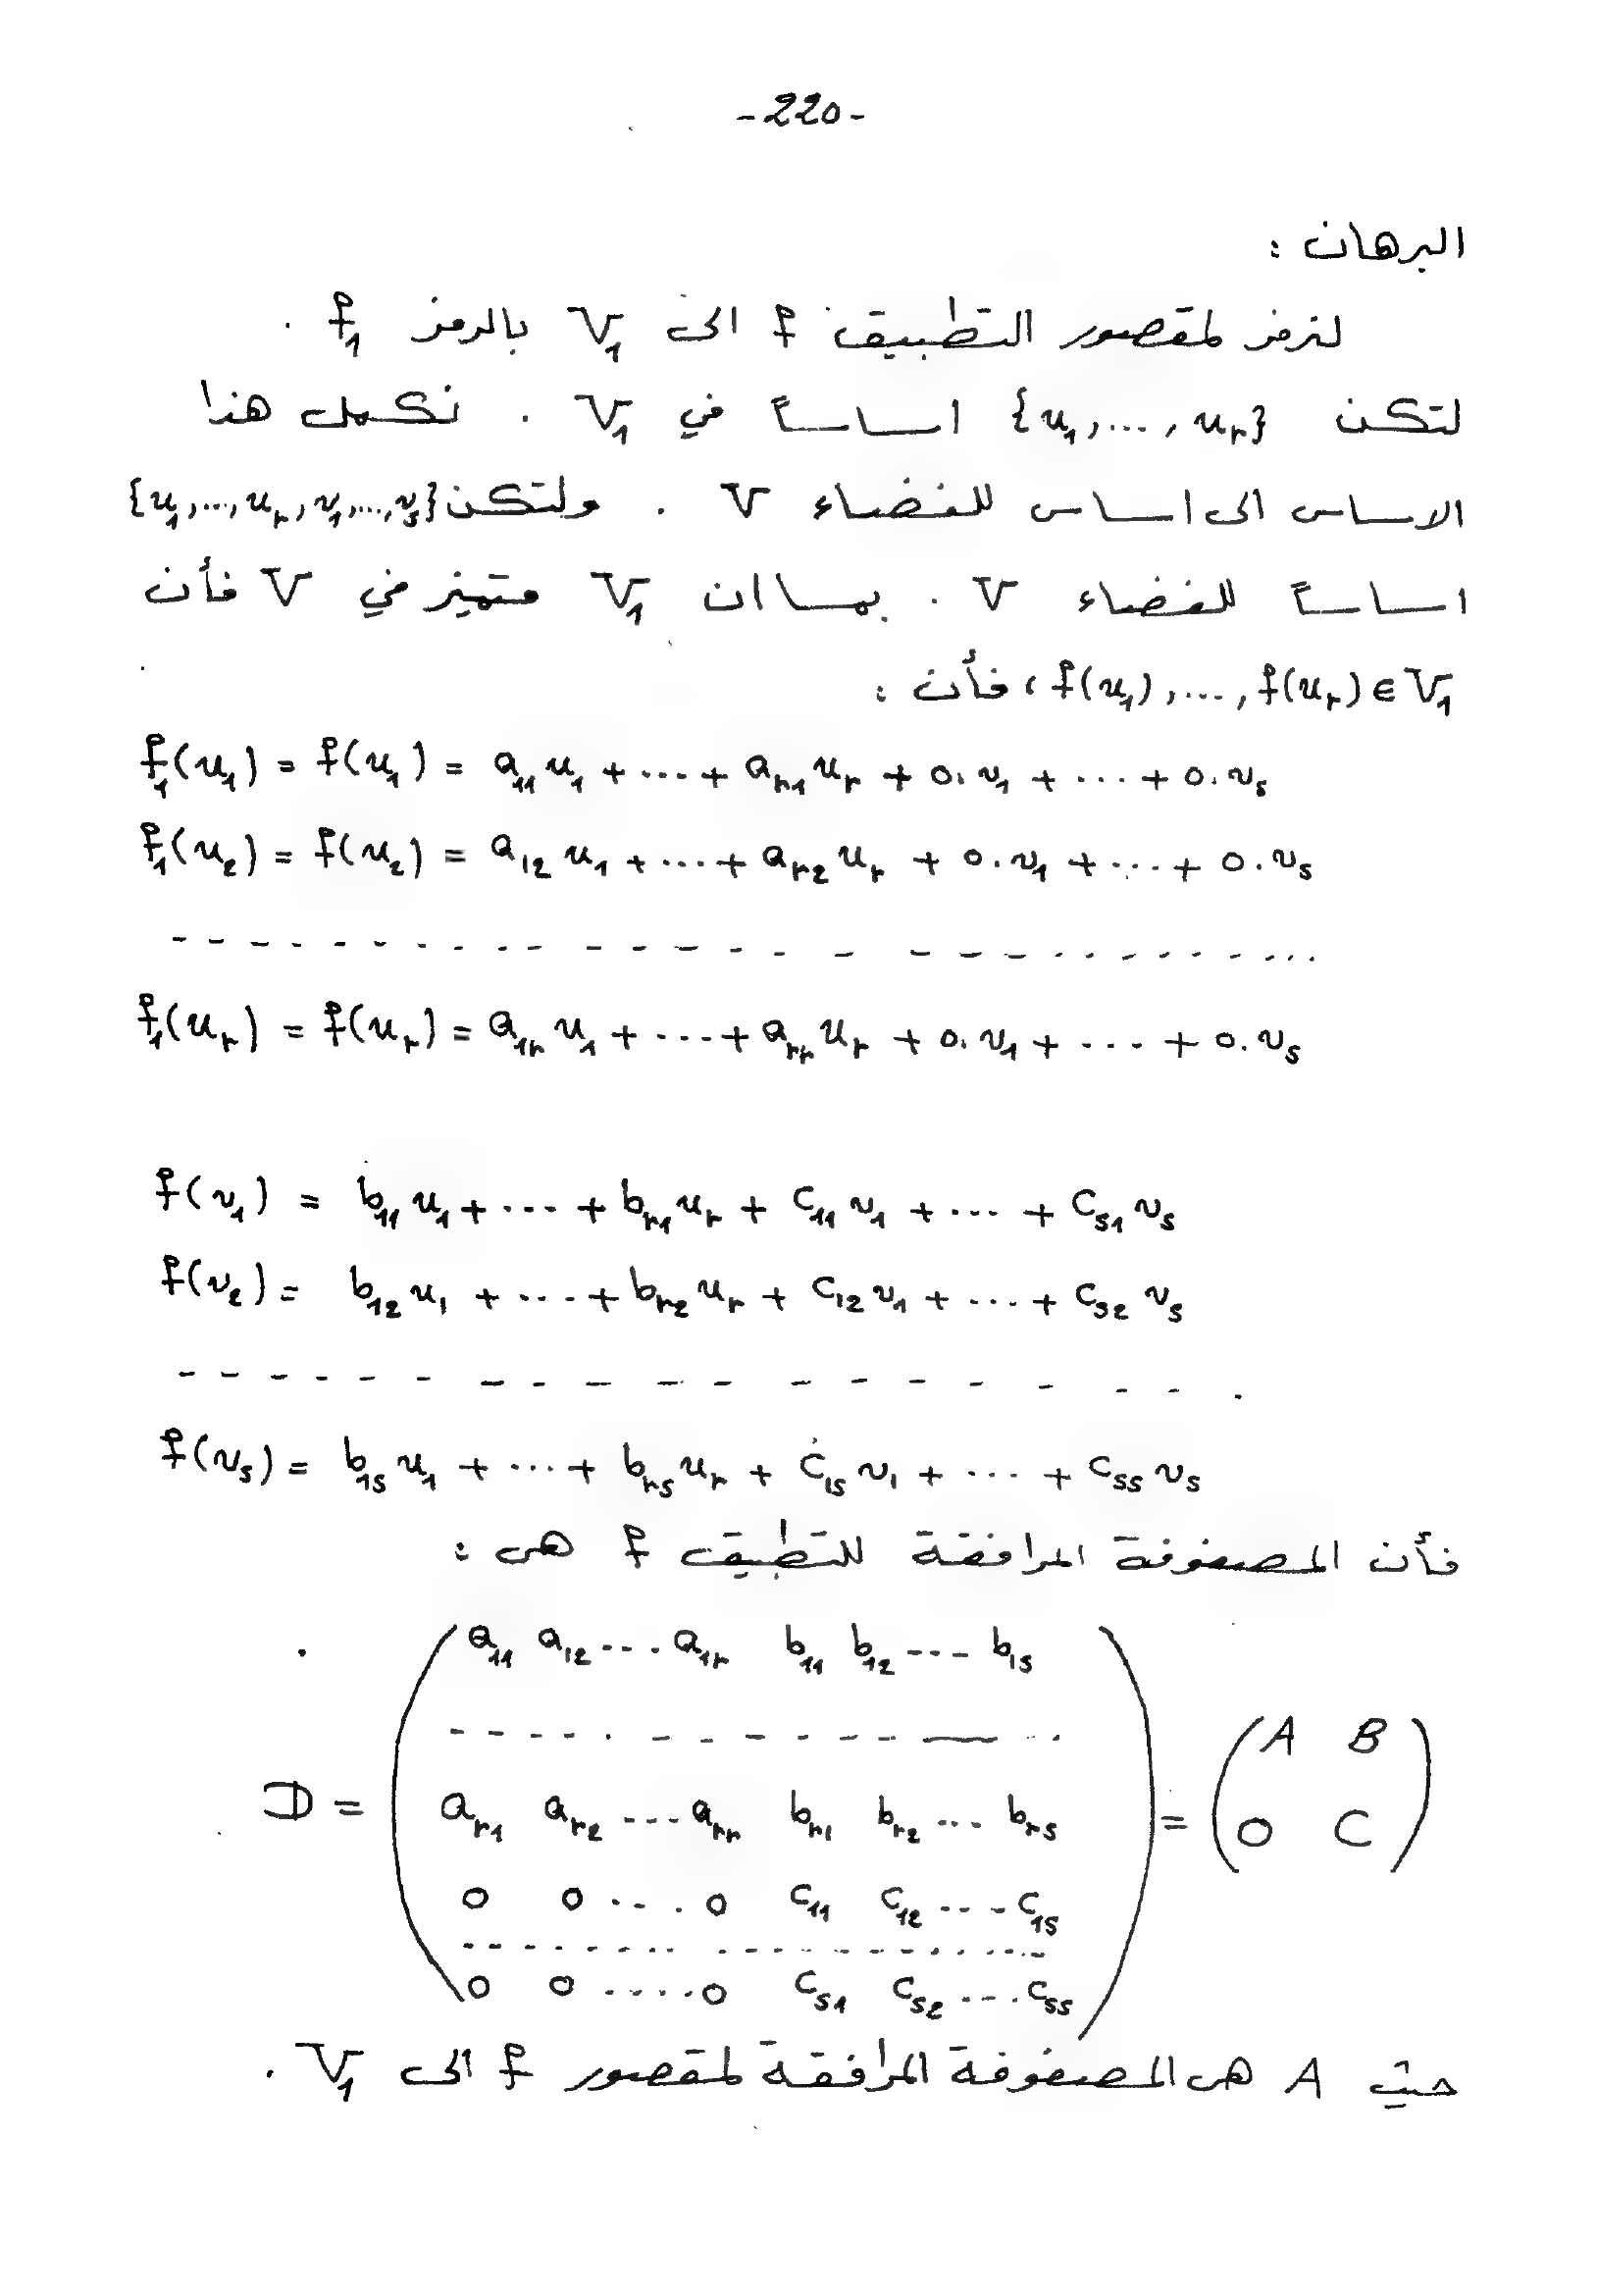 -220-
البرهان :
لنرمز لمقصور التطبيق f الى V₁ بالرمز f₁ .
لتكن {u₁,...,uᵣ} اساساً في V₁ . نكمل هذا
الاساس الى اساس للفضاء V . ولتكن {u₁,...,uᵣ,v₁,...,vₛ}
اساساً للفضاء V . بما ان V₁ متميز في V فأن
f(u₁),...,f(uᵣ) ∈ V₁ ، فأن :
f₁(u₁) = f(u₁) = a₁₁u₁ + ... + aᵣ₁uᵣ + 0.v₁ + ... + 0.vₛ
f₁(u₂) = f(u₂) = a₁₂u₁ + ... + aᵣ₂uᵣ + 0.v₁ + ... + 0.vₛ
- - - - - - - - - - - - - - - - - - - -
f₁(uᵣ) = f(uᵣ) = a₁ᵣu₁ + ... + aᵣᵣuᵣ + 0.v₁ + ... + 0.vₛ
f(v₁) = b₁₁u₁ + ... + bᵣ₁uᵣ + c₁₁v₁ + ... + cₛ₁vₛ
f(v₂) = b₁₂u₁ + ... + bᵣ₂uᵣ + c₁₂v₁ + ... + cₛ₂vₛ
- - - - - - - - - - - - - - - - - - - -
f(vₛ) = b₁ₛu₁ + ... + bᵣₛuᵣ + c₁ₛv₁ + ... + cₛₛvₛ
فأن المصفوفة المرافقة للتطبيق f هي :
a₁₁ a₁₂ ... a₁ᵣ b₁₁ b₁₂ --- b₁ₛ
- - - - - - - - - - - - - -
D = ( aᵣ₁ aᵣ₂ ... aᵣᵣ bᵣ₁ bᵣ₂ ... bᵣₛ ) = ( A B
0 C )
0 0 .... 0 c₁₁ c₁₂ ---- c₁ₛ
- - - - - - - - - - - - - -
0 0 ..... 0 cₛ₁ cₛ₂ --- cₛₛ
حيث A هي المصفوفة المرافقة لمقصور f الى V₁ .